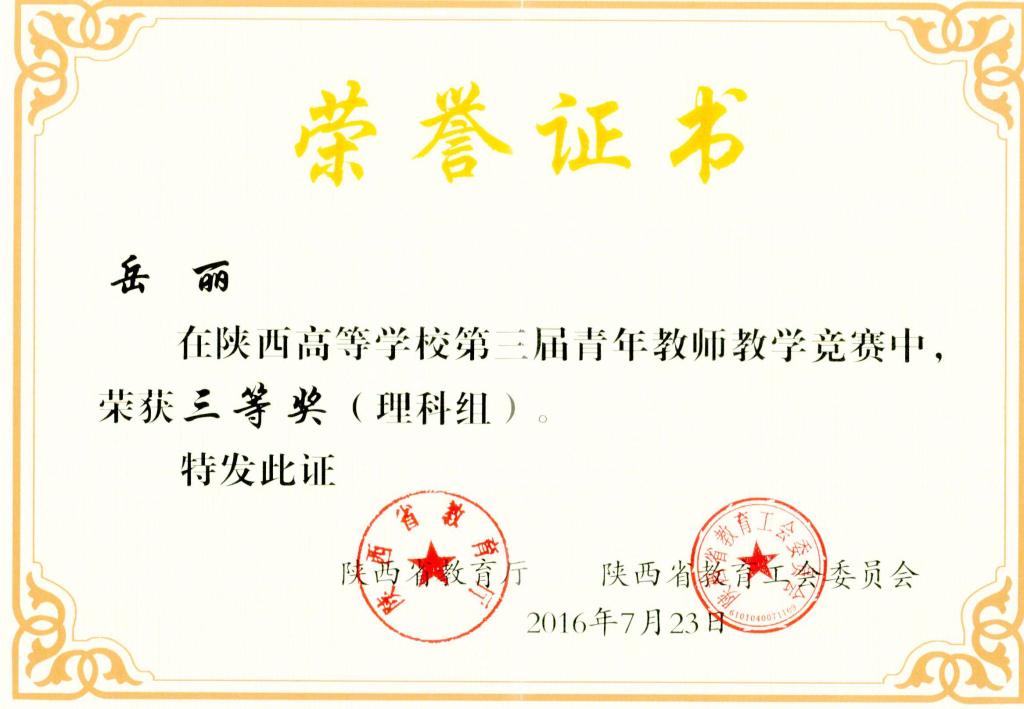 荣誉证书
岳 丽
在陕西高等学校第三届青年教师教学竞赛中，
荣获三等奖（理科组）。
特发此证
陕西省教育厅
陕西省教育工会委员会
陕西省教育厅 陕西省教育工会委员会
6101040071109
2016年7月23日